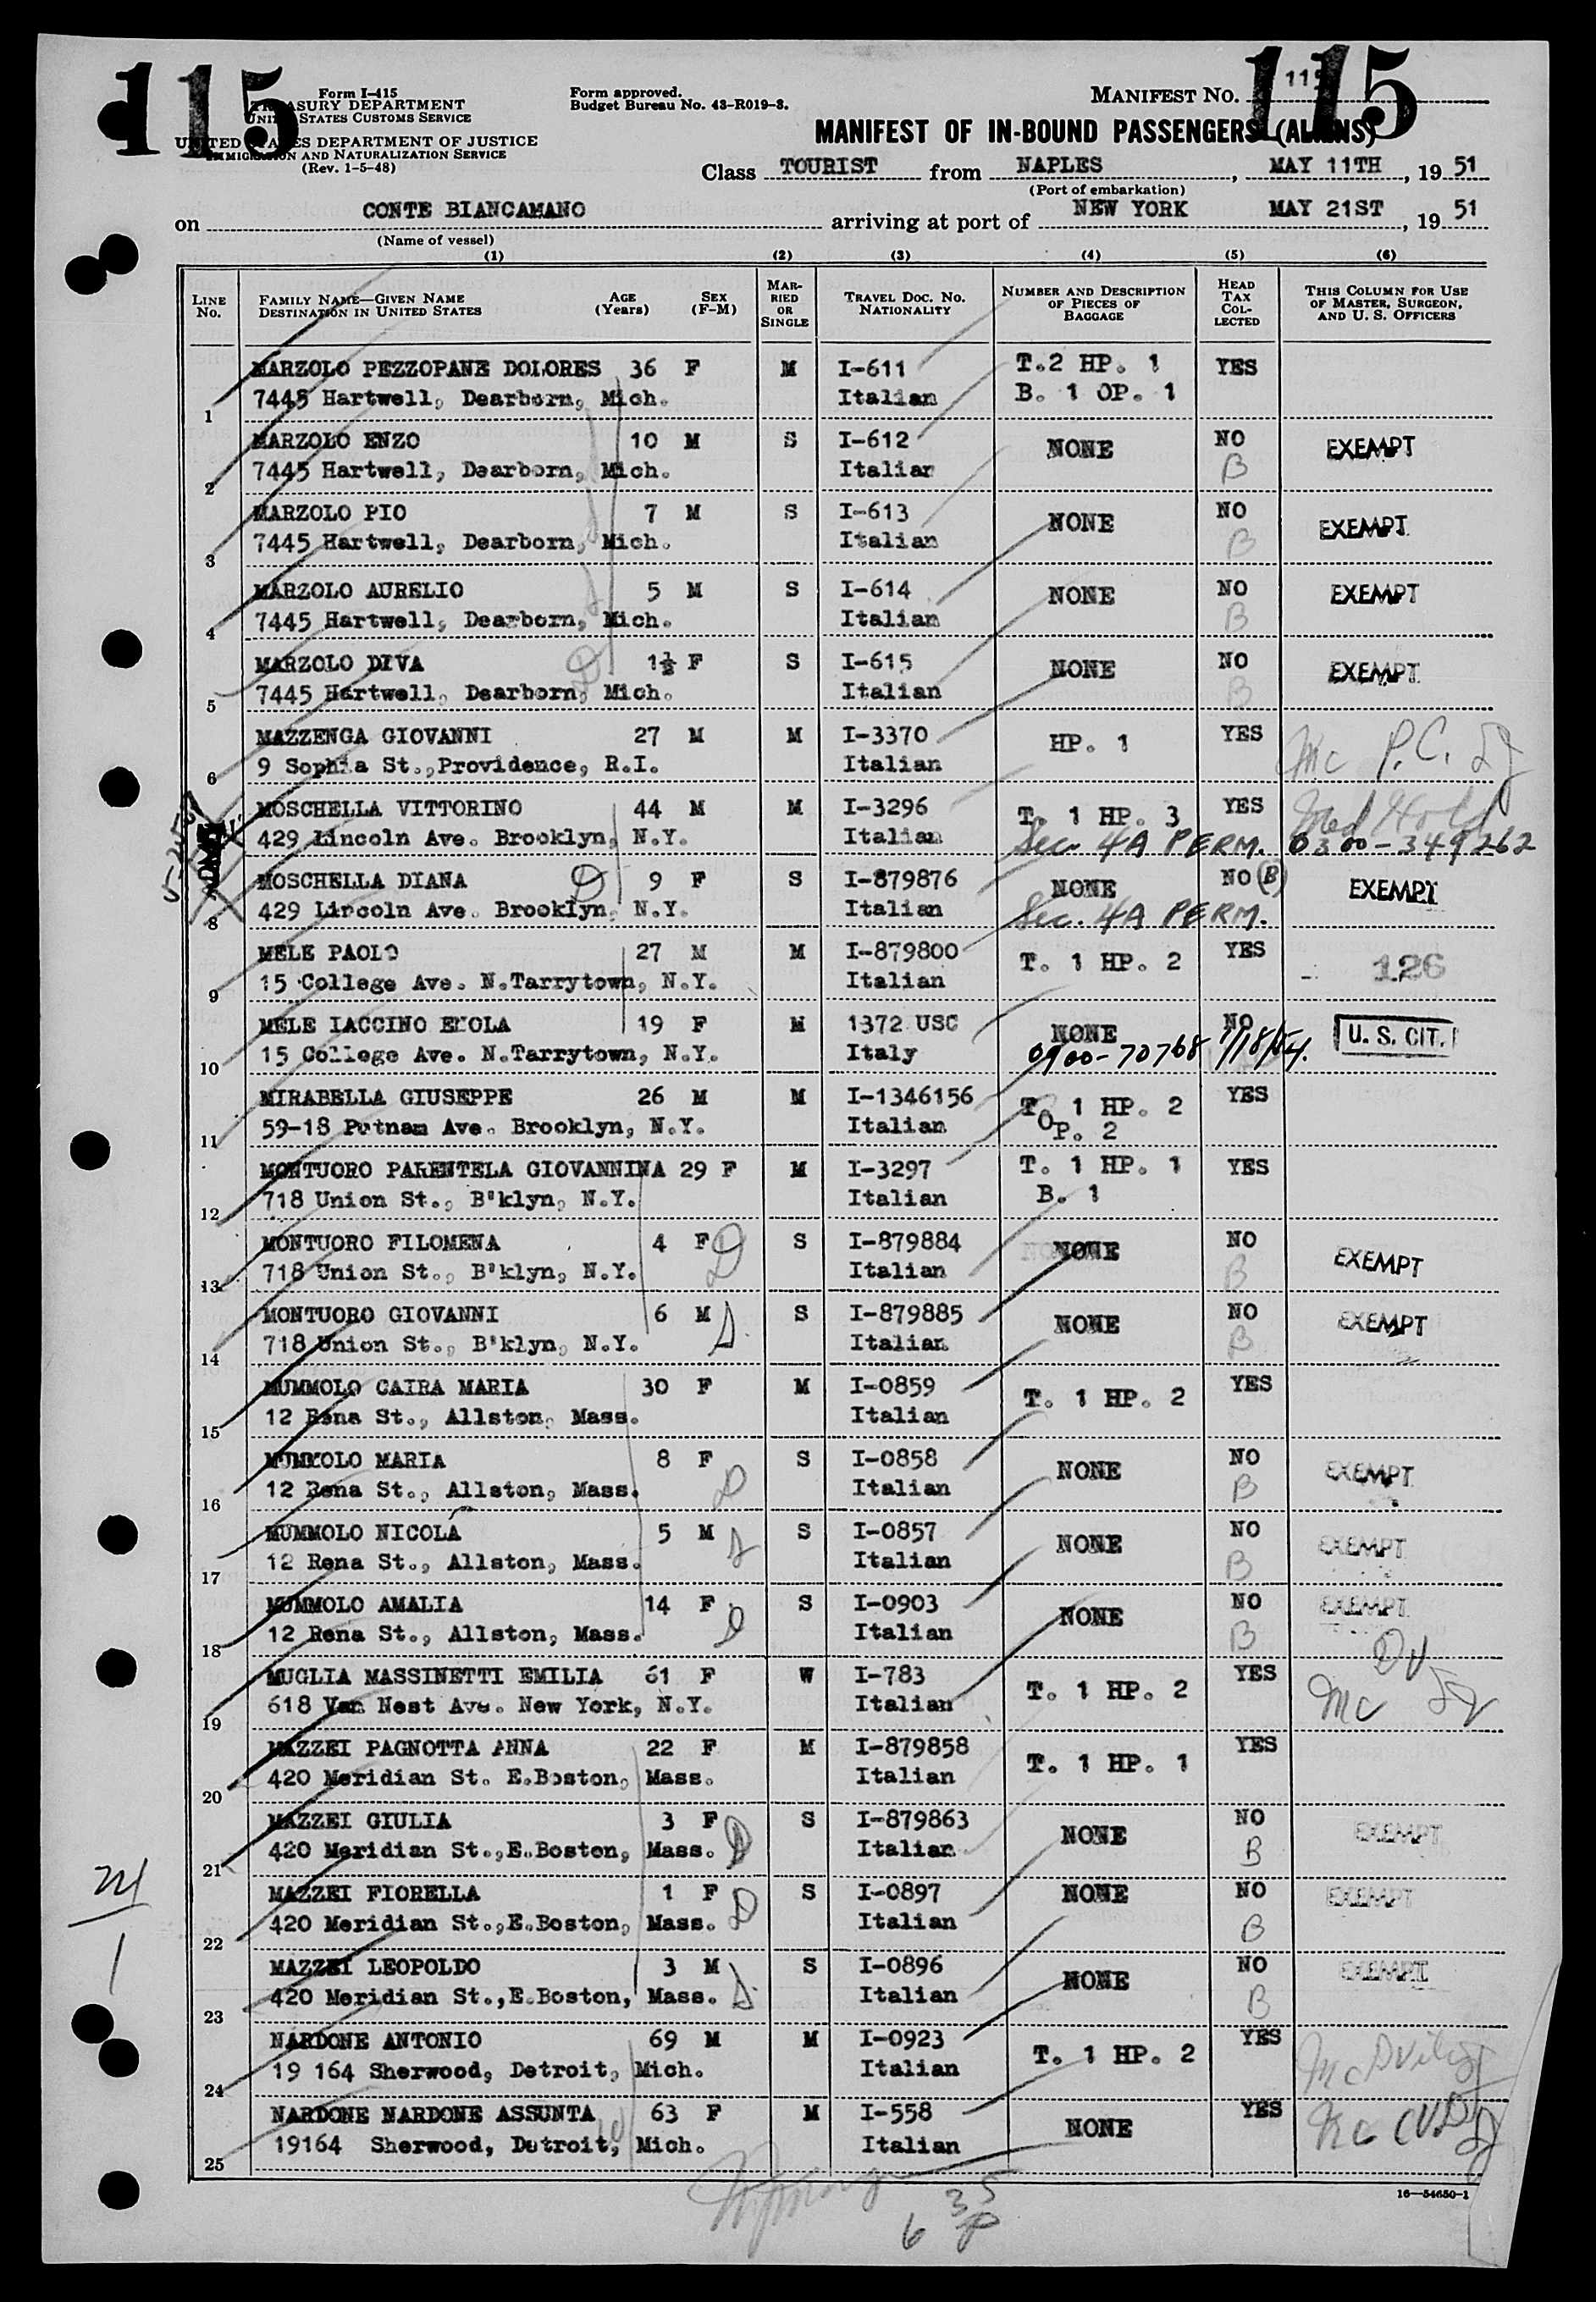 115
115
Form I-415
TREASURY DEPARTMENT
UNITED STATES CUSTOMS SERVICE
UNITED STATES DEPARTMENT OF JUSTICE
IMMIGRATION AND NATURALIZATION SERVICE
(Rev. 1-5-48)
Form approved.
Budget Bureau No. 43-R019-3.
MANIFEST NO. 115
MANIFEST OF IN-BOUND PASSENGERS (ALIENS)
Class TOURIST from NAPLES, MAY 11TH, 19 51
(Port of embarkation)
on CONTE BIANCAMANO arriving at port of NEW YORK MAY 21ST, 19 51
(Name of vessel)
(1) (2) (3) (4) (5) (6)
LINE NO. FAMILY NAME—GIVEN NAME DESTINATION IN UNITED STATES AGE (Years) SEX (F-M) MARRIED OR SINGLE TRAVEL DOC. NO. NATIONALITY NUMBER AND DESCRIPTION OF PIECES OF BAGGAGE HEAD TAX COLLECTED THIS COLUMN FOR USE OF MASTER, SURGEON, AND U. S. OFFICERS
MARZOLO PEZZOPANE DOLORES 36 F M I-611 T.2 HP. 1 YES
1 7445 Hartwell, Dearborn, Mich. Italian B. 1 OP. 1
MARZOLO ENZO 10 M S I-612 NONE NO EXEMPT
2 7445 Hartwell, Dearborn, Mich. Italian B
MARZOLO PIO 7 M S I-613 NONE NO EXEMPT
3 7445 Hartwell, Dearborn, Mich. Italian B
MARZOLO AURELIO 5 M S I-614 NONE NO EXEMPT
4 7445 Hartwell, Dearborn, Mich. Italian B
MARZOLO DIVA 1½ F S I-615 NONE NO EXEMPT
5 7445 Hartwell, Dearborn, Mich. D Italian B
MAZZENGA GIOVANNI 27 M M I-3370 HP. 1 YES Mc P.C.
6 9 Sophia St.,Providence, R.I. Italian
MOSCHELLA VITTORINO 44 M M I-3296 T. 1 HP. 3 YES Med Hold
429 Lincoln Ave. Brooklyn, N.Y. Italian Sec. 4A PERM. 0300-349262
MOSCHELLA DIANA D 9 F S I-879876 NONE NO (B) EXEMPT
8 429 Lincoln Ave. Brooklyn, N.Y. Italian Sec. 4A PERM.
MELE PAOLO 27 M M I-879800 T. 1 HP. 2 YES 126
9 15 College Ave. N.Tarrytown, N.Y. Italian
MELE IACCINO EMOLA 19 F M 1372 USC NONE NO U. S. CIT.
10 15 College Ave. N.Tarrytown, N.Y. Italy 0900-70768 1/18/54.
MIRABELLA GIUSEPPE 26 M M I-1346156 T. 1 HP. 2 YES
11 59-18 Putnam Ave. Brooklyn, N.Y. Italian OP. 2
MONTUORO PARENTELA GIOVANNINA 29 F M I-3297 T. 1 HP. 1 YES
12 718 Union St., B'klyn, N.Y. Italian B. 1
MONTUORO FILOMENA 4 F D S I-879884 NONE NO EXEMPT
13 718 Union St., B'klyn, N.Y. Italian B
MONTUORO GIOVANNI 6 M D S I-879885 NONE NO EXEMPT
14 718 Union St., B'klyn, N.Y. Italian B
MUMMOLO CAIRA MARIA 30 F M I-0859 T. 1 HP. 2 YES
15 12 Rena St., Allston, Mass. Italian
MUMMOLO MARIA 8 F S I-0858 NONE NO EXEMPT
16 12 Rena St., Allston, Mass. D Italian B
MUMMOLO NICOLA 5 M S I-0857 NONE NO EXEMPT
17 12 Rena St., Allston, Mass. Italian B
MUMMOLO AMALIA 14 F S I-0903 NONE NO EXEMPT
18 12 Rena St., Allston, Mass. D Italian B
MUGLIA MASSINETTI EMILIA 61 F W I-783 T. 1 HP. 2 YES DV
19 618 Van Nest Ave. New York, N.Y. Italian Mc
MAZZEI PAGNOTTA ANNA 22 F M I-879858 T. 1 HP. 1 YES
20 420 Meridian St. E.Boston, Mass. Italian
MAZZEI GIULIA 3 F S I-879863 NONE NO EXEMPT
21 420 Meridian St.,E.Boston, Mass. D Italian B
MAZZEI FIORELLA 1 F S I-0897 NONE NO EXEMPT
22 420 Meridian St.,E.Boston, Mass. D Italian B
MAZZEI LEOPOLDO 3 M S I-0896 NONE NO EXEMPT
23 420 Meridian St.,E.Boston, Mass. D Italian B
NARDONE ANTONIO 69 M M I-0923 T. 1 HP. 2 YES Mc
24 19 164 Sherwood, Detroit, Mich. Italian
NARDONE NARDONE ASSUNTA 63 F M I-558 NONE YES Mc
25 19164 Sherwood, Detroit, Mich. Italian
16—54650-1